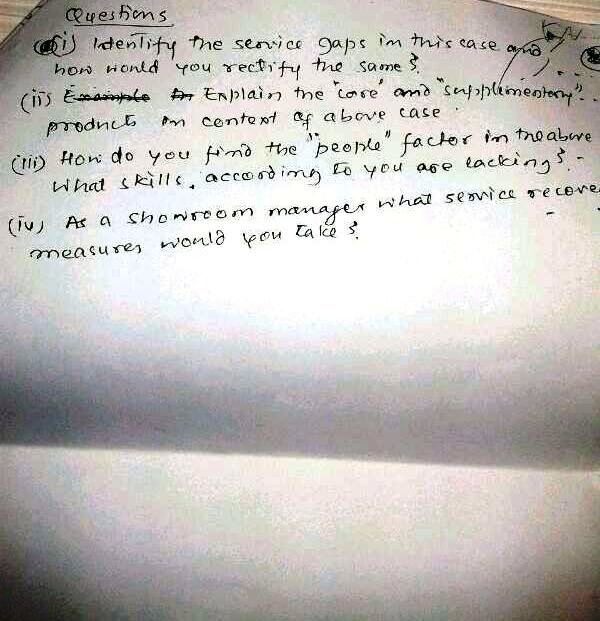 Questions
(i) Identify the service gaps in this case and
how would you rectify the same?
(ii) Example Explain the "core" and "supplementary"
products in context of above case.
(iii) How do you find the "people" factor in the above
What skills, according to you are lacking? -
(iv) As a showroom manager what service recove
measures would you take?